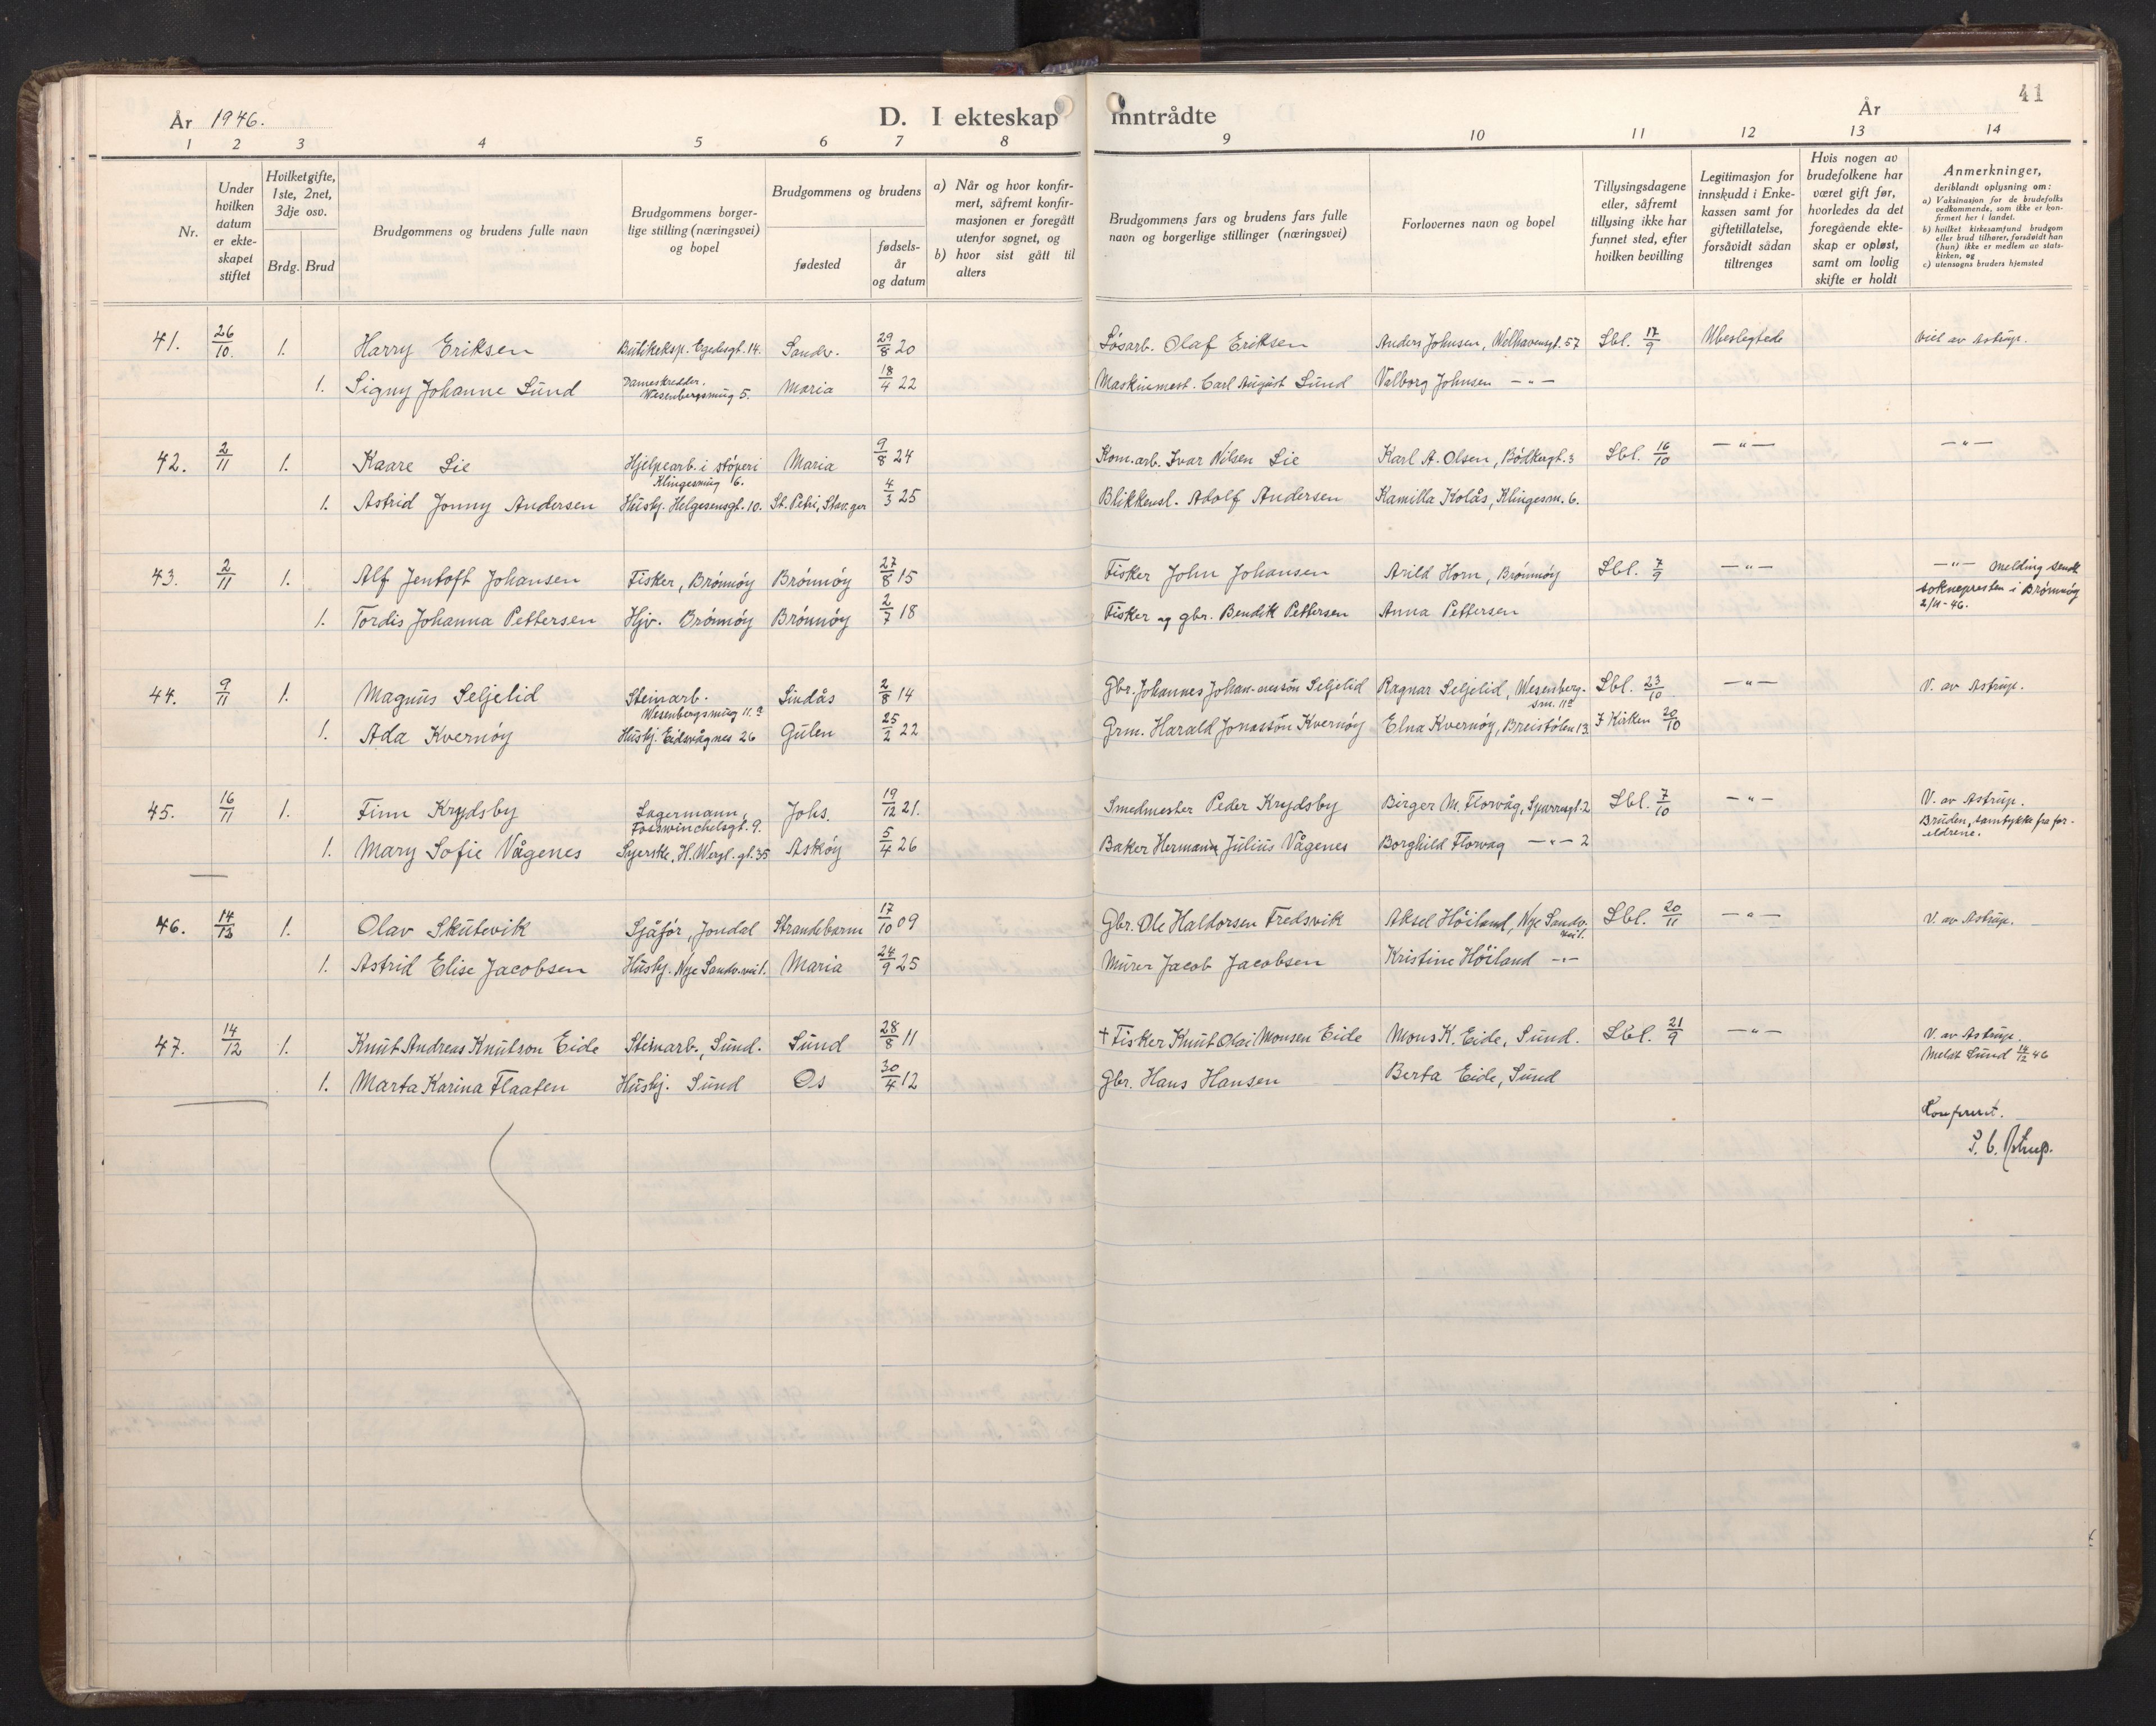 År 1946.
D. I ekteskap inntrådte
År
41
1 2 3 4 5 6 7 8 9 10 11 12 13 14
Nr.
Under hvilken datum er ekte-skapet stiftet
Hvilketgifte, 1ste, 2net, 3dje osv.
Brdg. Brud
Brudgommens og brudens fulle navn
Brudgommens borger-lige stilling (næringsvei) og bopel
Brudgommens og brudens
fødested
fødsels-år og datum
a) Når og hvor konfir-mert, såfremt konfir-masjonen er foregått utenfor sognet, og
b) hvor sist gått til alters
Brudgommens fars og brudens fars fulle navn og borgerlige stillinger (næringsvei)
Forlovernes navn og bopel
Tillysingsdagene eller, såfremt tillysing ikke har funnet sted, efter hvilken bevilling
Legitimasjon for innskudd i Enke-kassen samt for giftetillatelse, forsåvidt sådan tiltrenges
Hvis nogen av brudefolkene har været gift før, hvorledes da det foregående ekte-skap er opløst, samt om lovlig skifte er holdt
Anmerkninger,
deriblandt oplysning om:
a) Vaksinasjon for de brudefolks vedkommende, som ikke er kon-firmert her i landet.
b) hvilket kirkesamfund brudgom eller brud tilhører, forsåvidt han (hun) ikke er medlem av stats-kirken, og
c) utensogns bruders hjemsted
41. 26/10. 1. Harry Eriksen Butikeksp. Egedesgt. 14. Sandv. 29/8 20 Løsarb. Olaf Eriksen Anders Johnsen, Welhavensgt. 57 Lbl. 17/9 Ubeslegtede Viet av Astrup.
1. Signy Johanne Lund Dameskredder. Wesenbergsmug 5. Maria 18/4 22 Maskinmest. Carl August Lund Valborg Johnsen — " —
42. 2/11 1. Kaare Lie Hjelpearb. i støperi Klingesmug 6. Maria 9/8 24 Kom.arb. Ivar Nilsen Lie Karl A. Olsen, Bødkergt. 3 Lbl. 16/10 — " — — " —
1. Astrid Jonny Andersen Hushj. Helgesensgt. 10. St. Petri, Stav.ger 4/3 25 Blikkensl. Adolf Andersen Kamilla Kolås, Klingesm. 6.
43. 2/11 1. Alf Jentoft Johansen Fisker, Brønnøy Brønnøy 27/8 15 Fisker John Johansen Arild Horn, Brønnøy Lbl. 7/9 — " — — " — Melding sendt
soknepresten i Brønnøy
2/11-46.
1. Tordis Johanna Pettersen Hjv. Brønnøy Brønnøy 2/7 18 Fisker og gbr. Bendik Pettersen Anna Pettersen
44. 9/11 1. Magnus Seljelid Steinarb. Wesenbergsmug 11.a Lindås 2/8 14 Gbr. Johannes Johan-nessøn Seljelid Ragnar Seljelid, Wesenberg-sm. 11a Lbl. 23/10 — " — V. av Astrup.
1. Ada Kvernøy Hushj. Eidsvågnes 26 Gulen 25/2 22 Grm. Harald Jonassøn Kvernøy Elna Kvernøy, Breistølen 13. I Kirken 20/10
45. 16/11 1. Finn Krydsby Lagermann, Fosswinchelsgt. 9. Johs. 19/12 21. Smedmester Peder Krydsby Birger M. Florvåg, Sparresgt. 2 Lbl. 7/10 — " — V. av Astrup.
Bruden, samtykke fra for-eldrene.
1. Mary Sofie Vågenes Syerske, H. Wergl. gt. 35 Askøy 5/4 26 Baker Hermann Julius Vågenes Borghild Florvag — " — 2
46. 14/12 1. Olav Skutevik Sjåfør, Jondal Strandebarm 17/10 09 Gbr. Ole Haldorsen Fredsvik Aksel Høiland, Nye Sandv.vei 1. Lbl. 20/11 — " — V. av Astrup.
1. Astrid Elise Jacobsen Hushj. Nye Sandv.vei 1. Maria 24/9 25 Murer Jacob Jacobsen Kristine Høiland — " —
47. 14/12 1. Knut Andreas Knutson Eide Steinarb., Sund. Sund 28/8 11 + Fisker Knut Olai Monsen Eide Mons K. Eide, Sund. Lbl. 21/9 — " — V. av Astrup.
Meldt Sund 14/12 46
1. Marta Karina Flaaten Hushj. Sund Os 30/4 12 Gbr. Hans Hansen Berta Eide, Sund
Konferert.
Astrup.